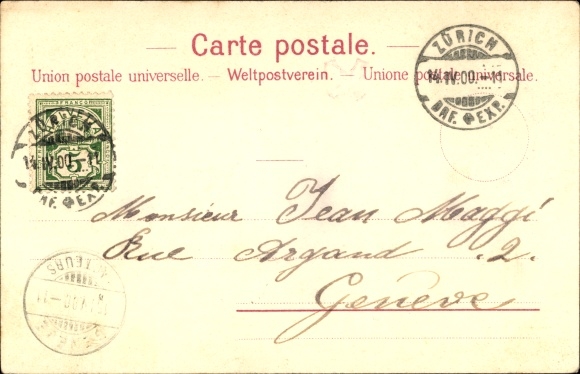 Carte postale.
Union postale universelle. — Weltpostverein. — Unione postale universale.
ZÜRICH
14.IV.00.–11
BRF. EXP.
FRANCO
14.IV.00.–11
5
BRF. EXP.
Monsieur Jean Maggi
Rue Argand .2.
Genève